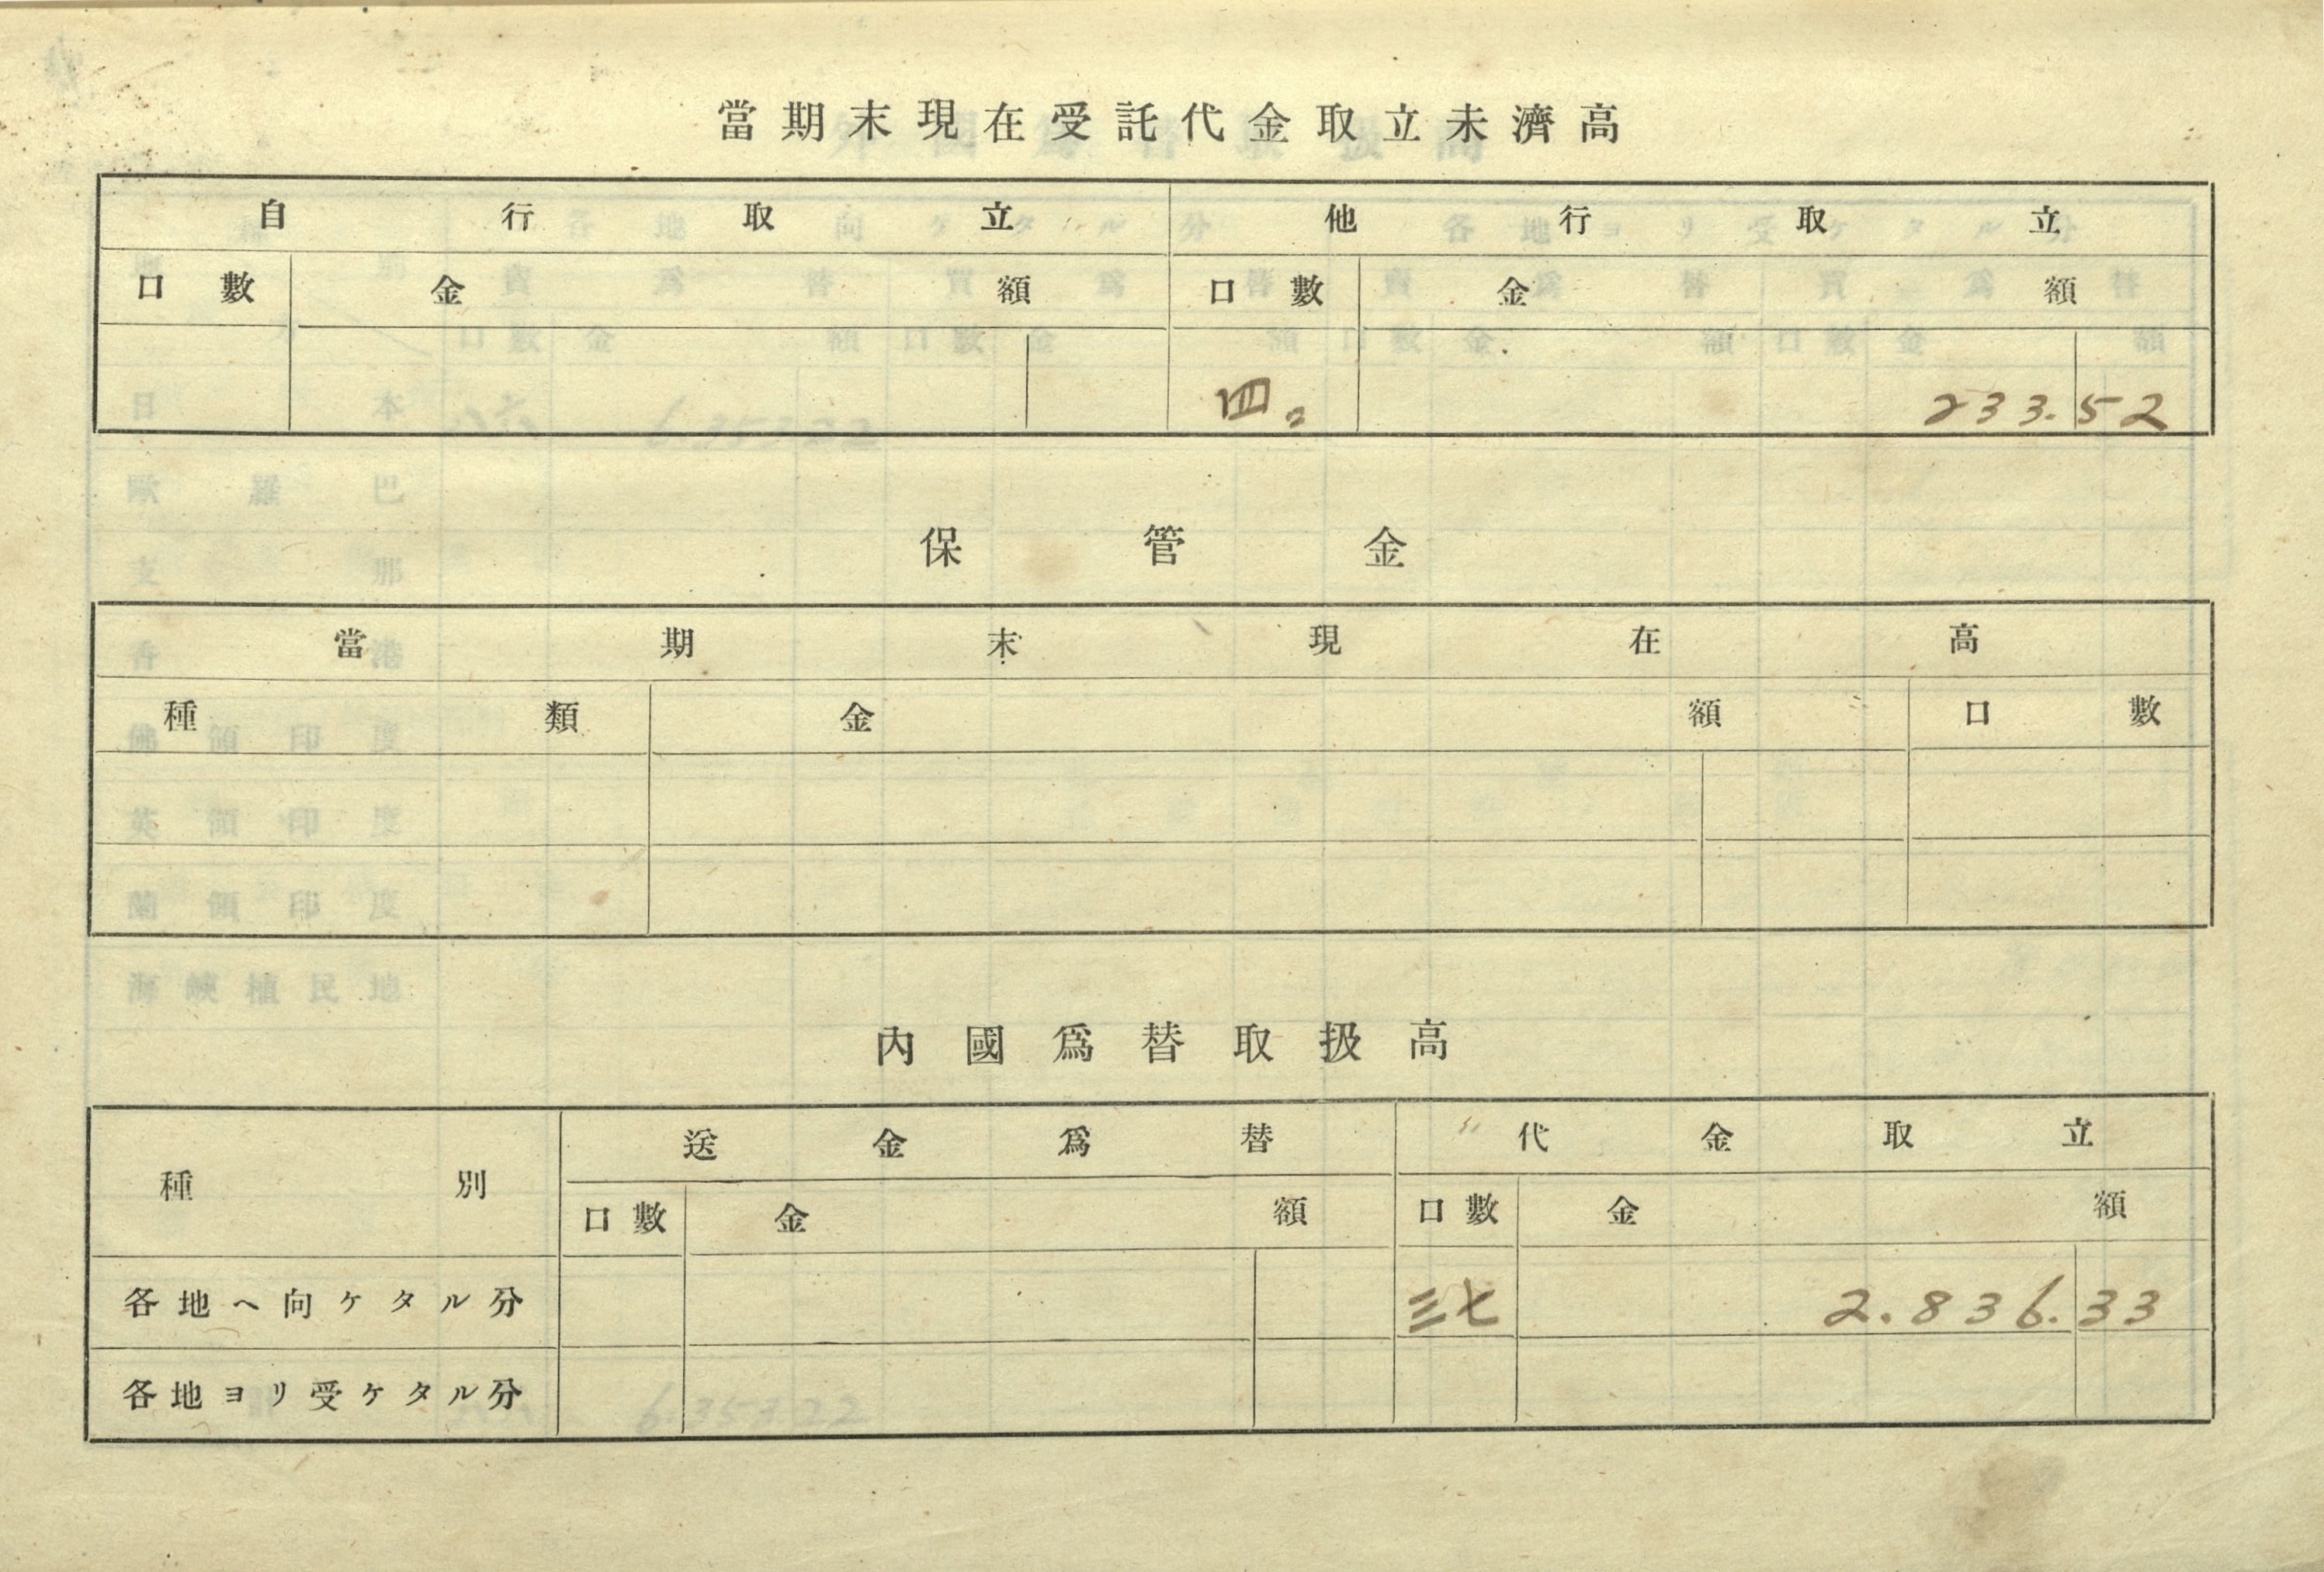 當期末現在受託代金取立未濟高
自行取立 他行取立
口數 金額 口數 金額
四 233.52
保管金
當期末現在高
種類 金額 口數
內國爲替取扱高
種別 送金爲替 代金取立
口數 金額 口數 金額
各地へ向ケタル分 三七 2.836.33
各地ヨリ受ケタル分